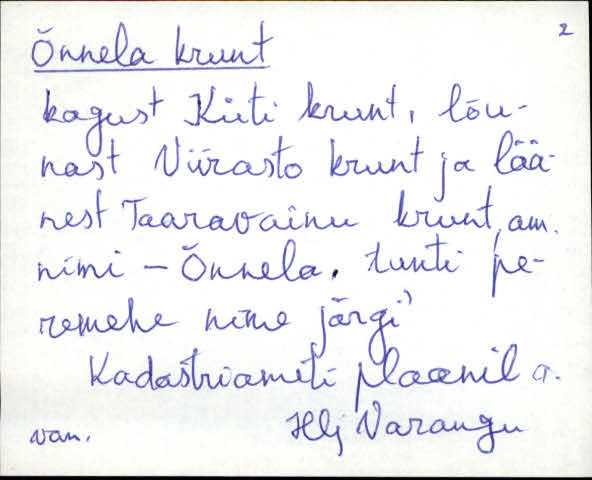 Õnnela krunt 2
kagust Kiiti krunt, lõu-
nast Viirasto krunt ja lää-
nest Taaravainu krunt, am.
nimi – Õnnela, tunti pe-
remehe nime järgi
Kadastriameti plaanil a.
van. Hlj Varangu